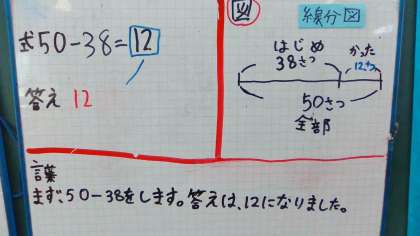 式 50-38=12
答え 12
図
線分図
はじめ
38さつ
かった
12さつ
50さつ
全部
言葉
まず、50-38をします。答えは、12になりました。